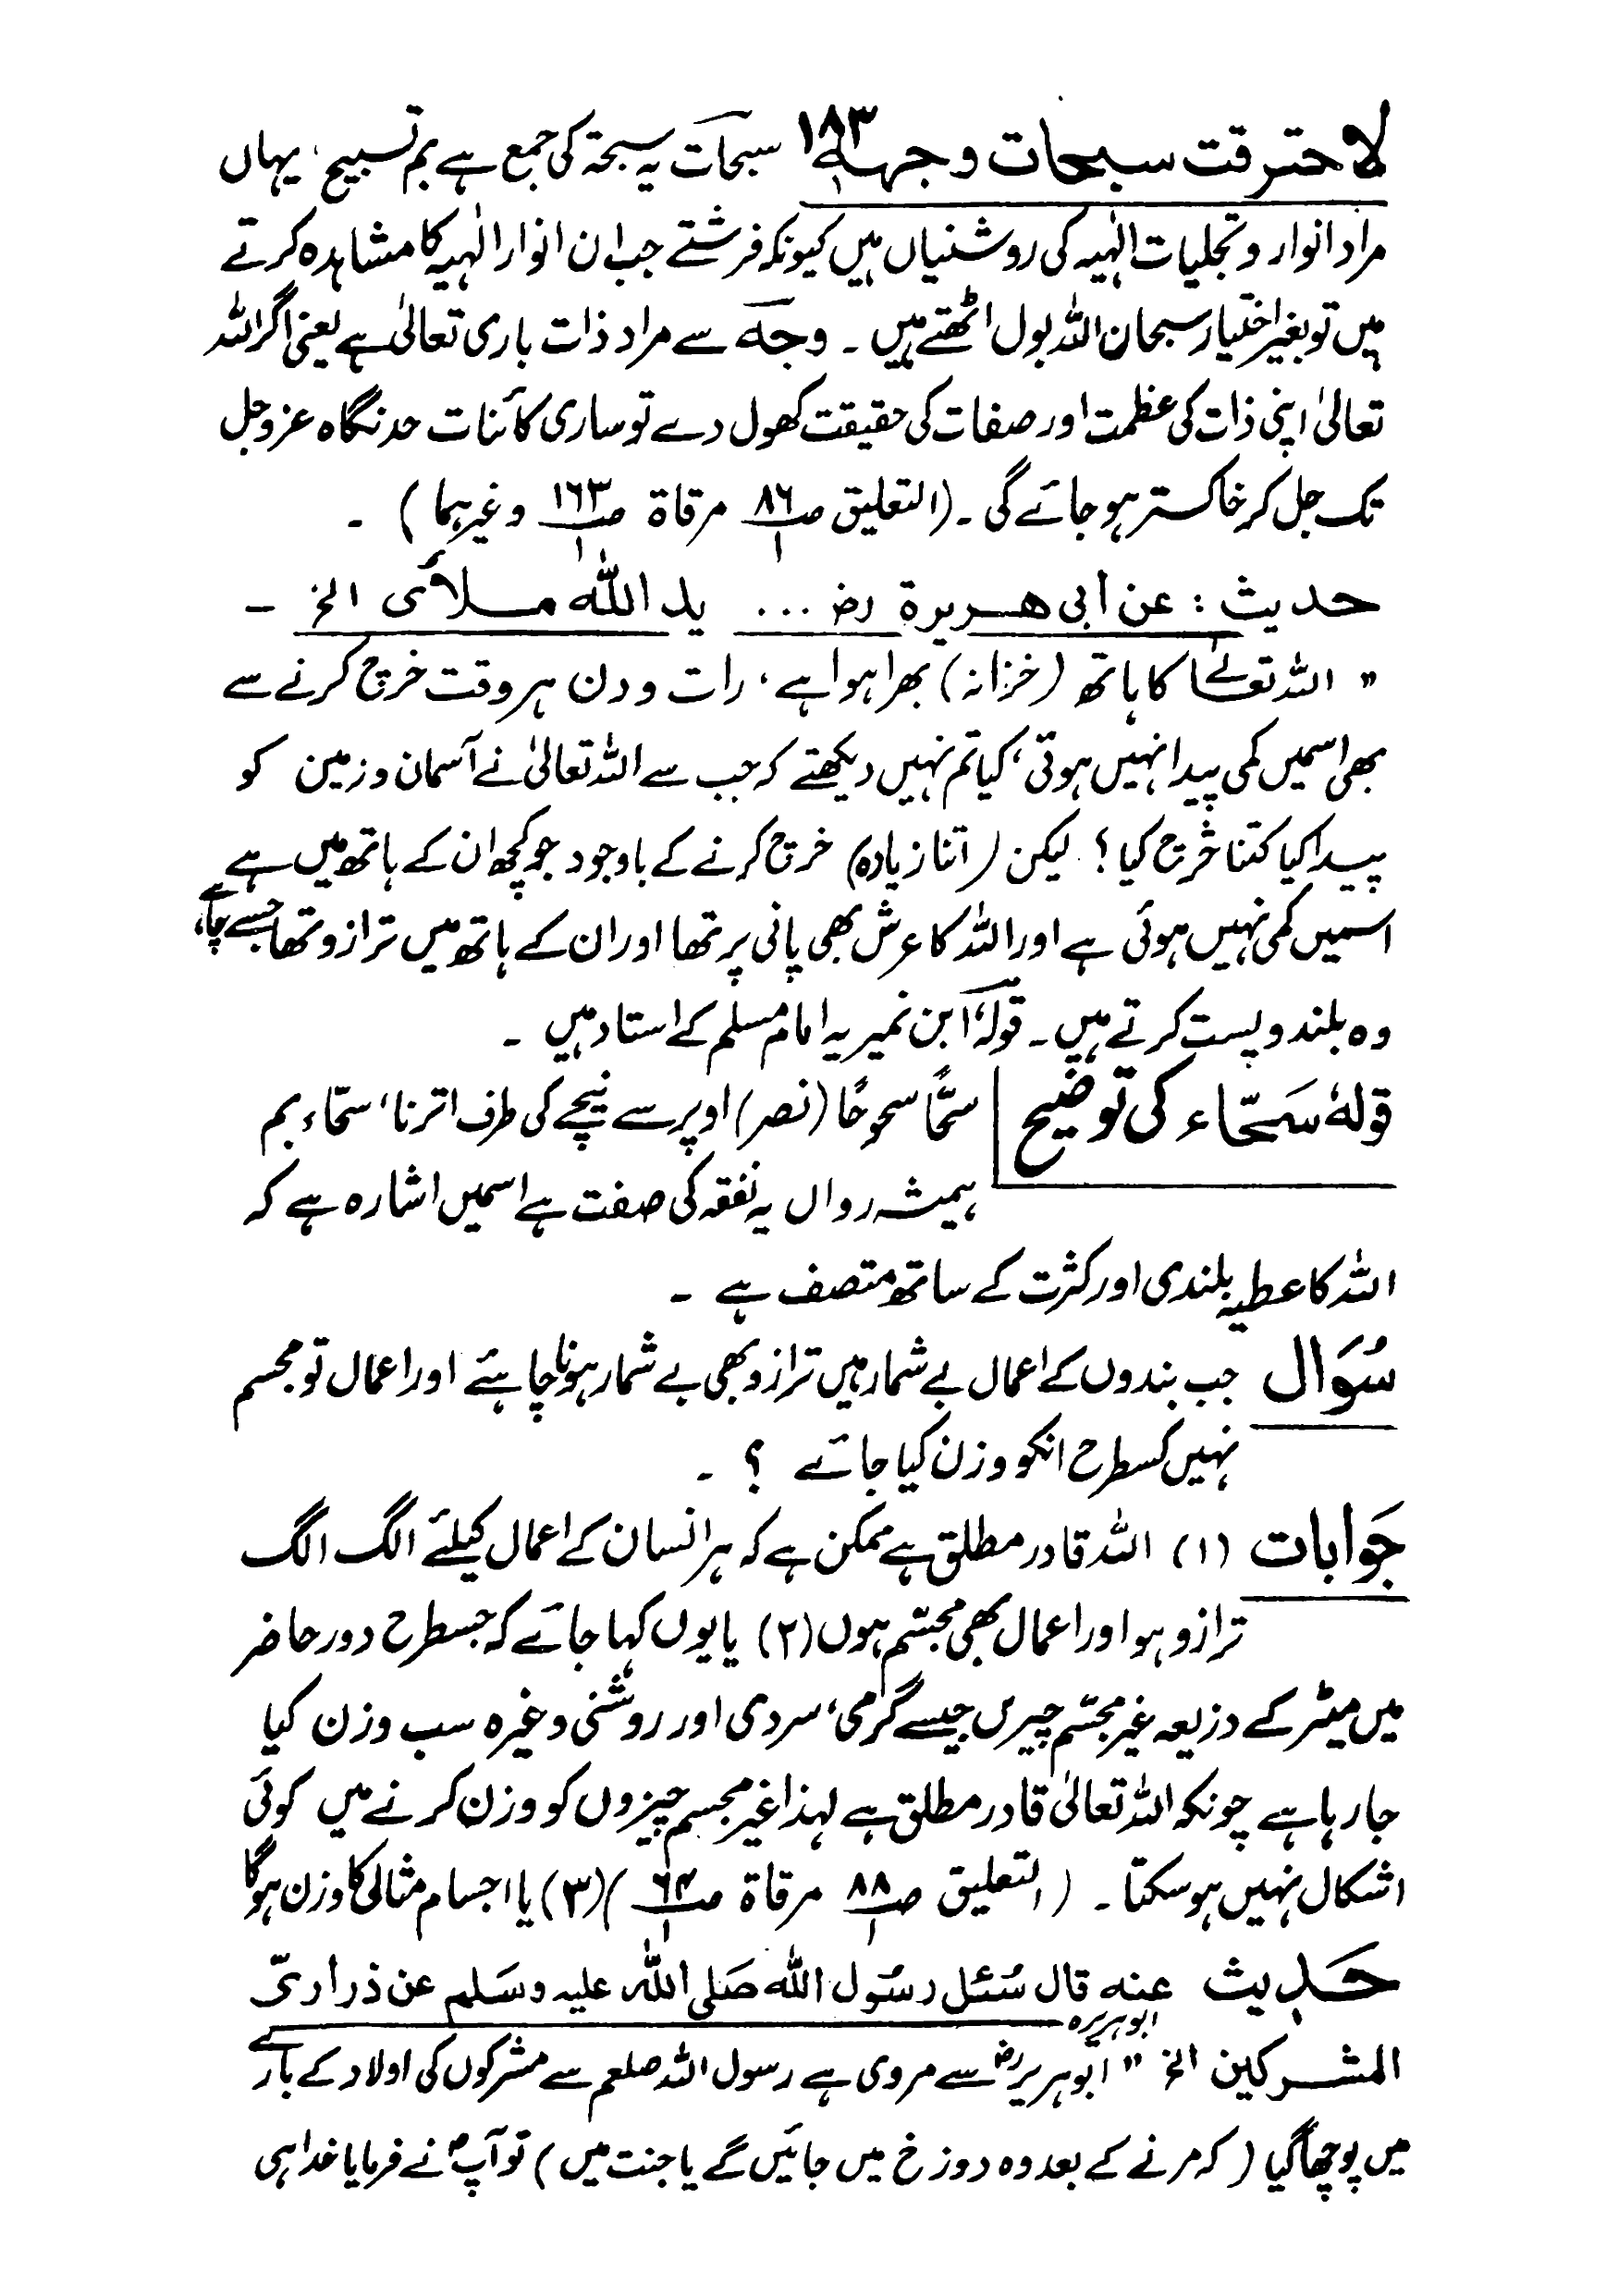 ۱۸۳
لاحترقت سبحات وجہہ سبحات یہ سبحۃ کی جمع ہے بم تسبیح، یہاں
مراد انوار و تجلیات الٰہیہ کی روشنیاں ہیں کیونکہ فرشتے جب ان انوار الٰہیہ کا مشاہدہ کرتے
ہیں تو بغیر اختیار سبحان اللہ بول اٹھتے ہیں ۔ وجہ سے مراد ذات باری تعالیٰ ہے یعنی اگر اللہ
تعالیٰ اپنی ذات کی عظمت اور صفات کی حقیقت کھول دے تو ساری کائنات حد نگاہ عزوجل
تک جل کر خاکستر ہو جائے گی ۔ (التعلیق ص ۸۶/۱ مرقاۃ ص ۱۶۳/۱ وغیرہما) ۔
حدیث : عن ابی ھریرۃ رض ... ید اللہ ملأی الخ ۔
" اللہ تعالےٰ کا ہاتھ (خزانہ) بھرا ہوا ہے، رات و دن ہر وقت خرچ کرنے سے
بھی اسمیں کمی پیدا نہیں ہوتی، کیا تم نہیں دیکھتے کہ جب سے اللہ تعالیٰ نے آسمان و زمین کو
پیدا کیا کتنا خرچ کیا ؟ لیکن (اتنا زیادہ) خرچ کرنے کے باوجود جو کچھ ان کے ہاتھ میں ہے
اسمیں کمی نہیں ہوئی ہے اور اللہ کا عرش بھی پانی پر تھا اور ان کے ہاتھ میں ترازو تھا جسے چاہے
وہ بلند و پست کرتے ہیں ۔ قولہٗ ابن نمیر یہ امام مسلم کے استاد ہیں ۔
قولہٗ سَحّاء کی توضیح سحًّا سحوحًا (نصر) اوپر سے نیچے کی طرف اترنا، سحّاء بم
ہمیشہ رواں یہ نفقہ کی صفت ہے اسمیں اشارہ ہے کہ
اللہ کا عطیہ بلندی اور کثرت کے ساتھ متصف ہے ۔
سُوَال جب بندوں کے اعمال بے شمار ہیں ترازو بھی بے شمار ہونا چاہئے اور اعمال تو مجسم
نہیں کسطرح انکو وزن کیا جائے ؟ ۔
جَوابات (۱) اللہ قادر مطلق ہے ممکن ہے کہ ہر انسان کے اعمال کیلئے الگ الگ
ترازو ہو اور اعمال بھی مجسّم ہوں (۲) یا یوں کہا جائے کہ جسطرح دور حاضر
میں میٹر کے ذریعہ غیر مجسّم چیزیں جیسے گرمی، سردی اور روشنی وغیرہ سب وزن کیا
جا رہا ہے چونکہ اللہ تعالیٰ قادر مطلق ہے لہذا غیر مجسم چیزوں کو وزن کرنے میں کوئی
اشکال نہیں ہو سکتا ۔ (التعلیق ص ۸۸/۱ مرقاۃ ص ۶۴/۱) (۳) یا اجسام مثالی کا وزن ہوگا
حَدیث عنہ قال سُئل رسُول اللہ صَلی اللہ علیہ وسَلم عن ذراریّ
ابو ہریرہ
المشرکین الخ " ابوہریرہؓ سے مروی ہے رسول اللہ صلعم سے مشرکوں کی اولاد کے بارے
میں پوچھا گیا (کہ مرنے کے بعد وہ دوزخ میں جائیں گے یا جنت میں) تو آپؐ نے فرمایا خدا ہی